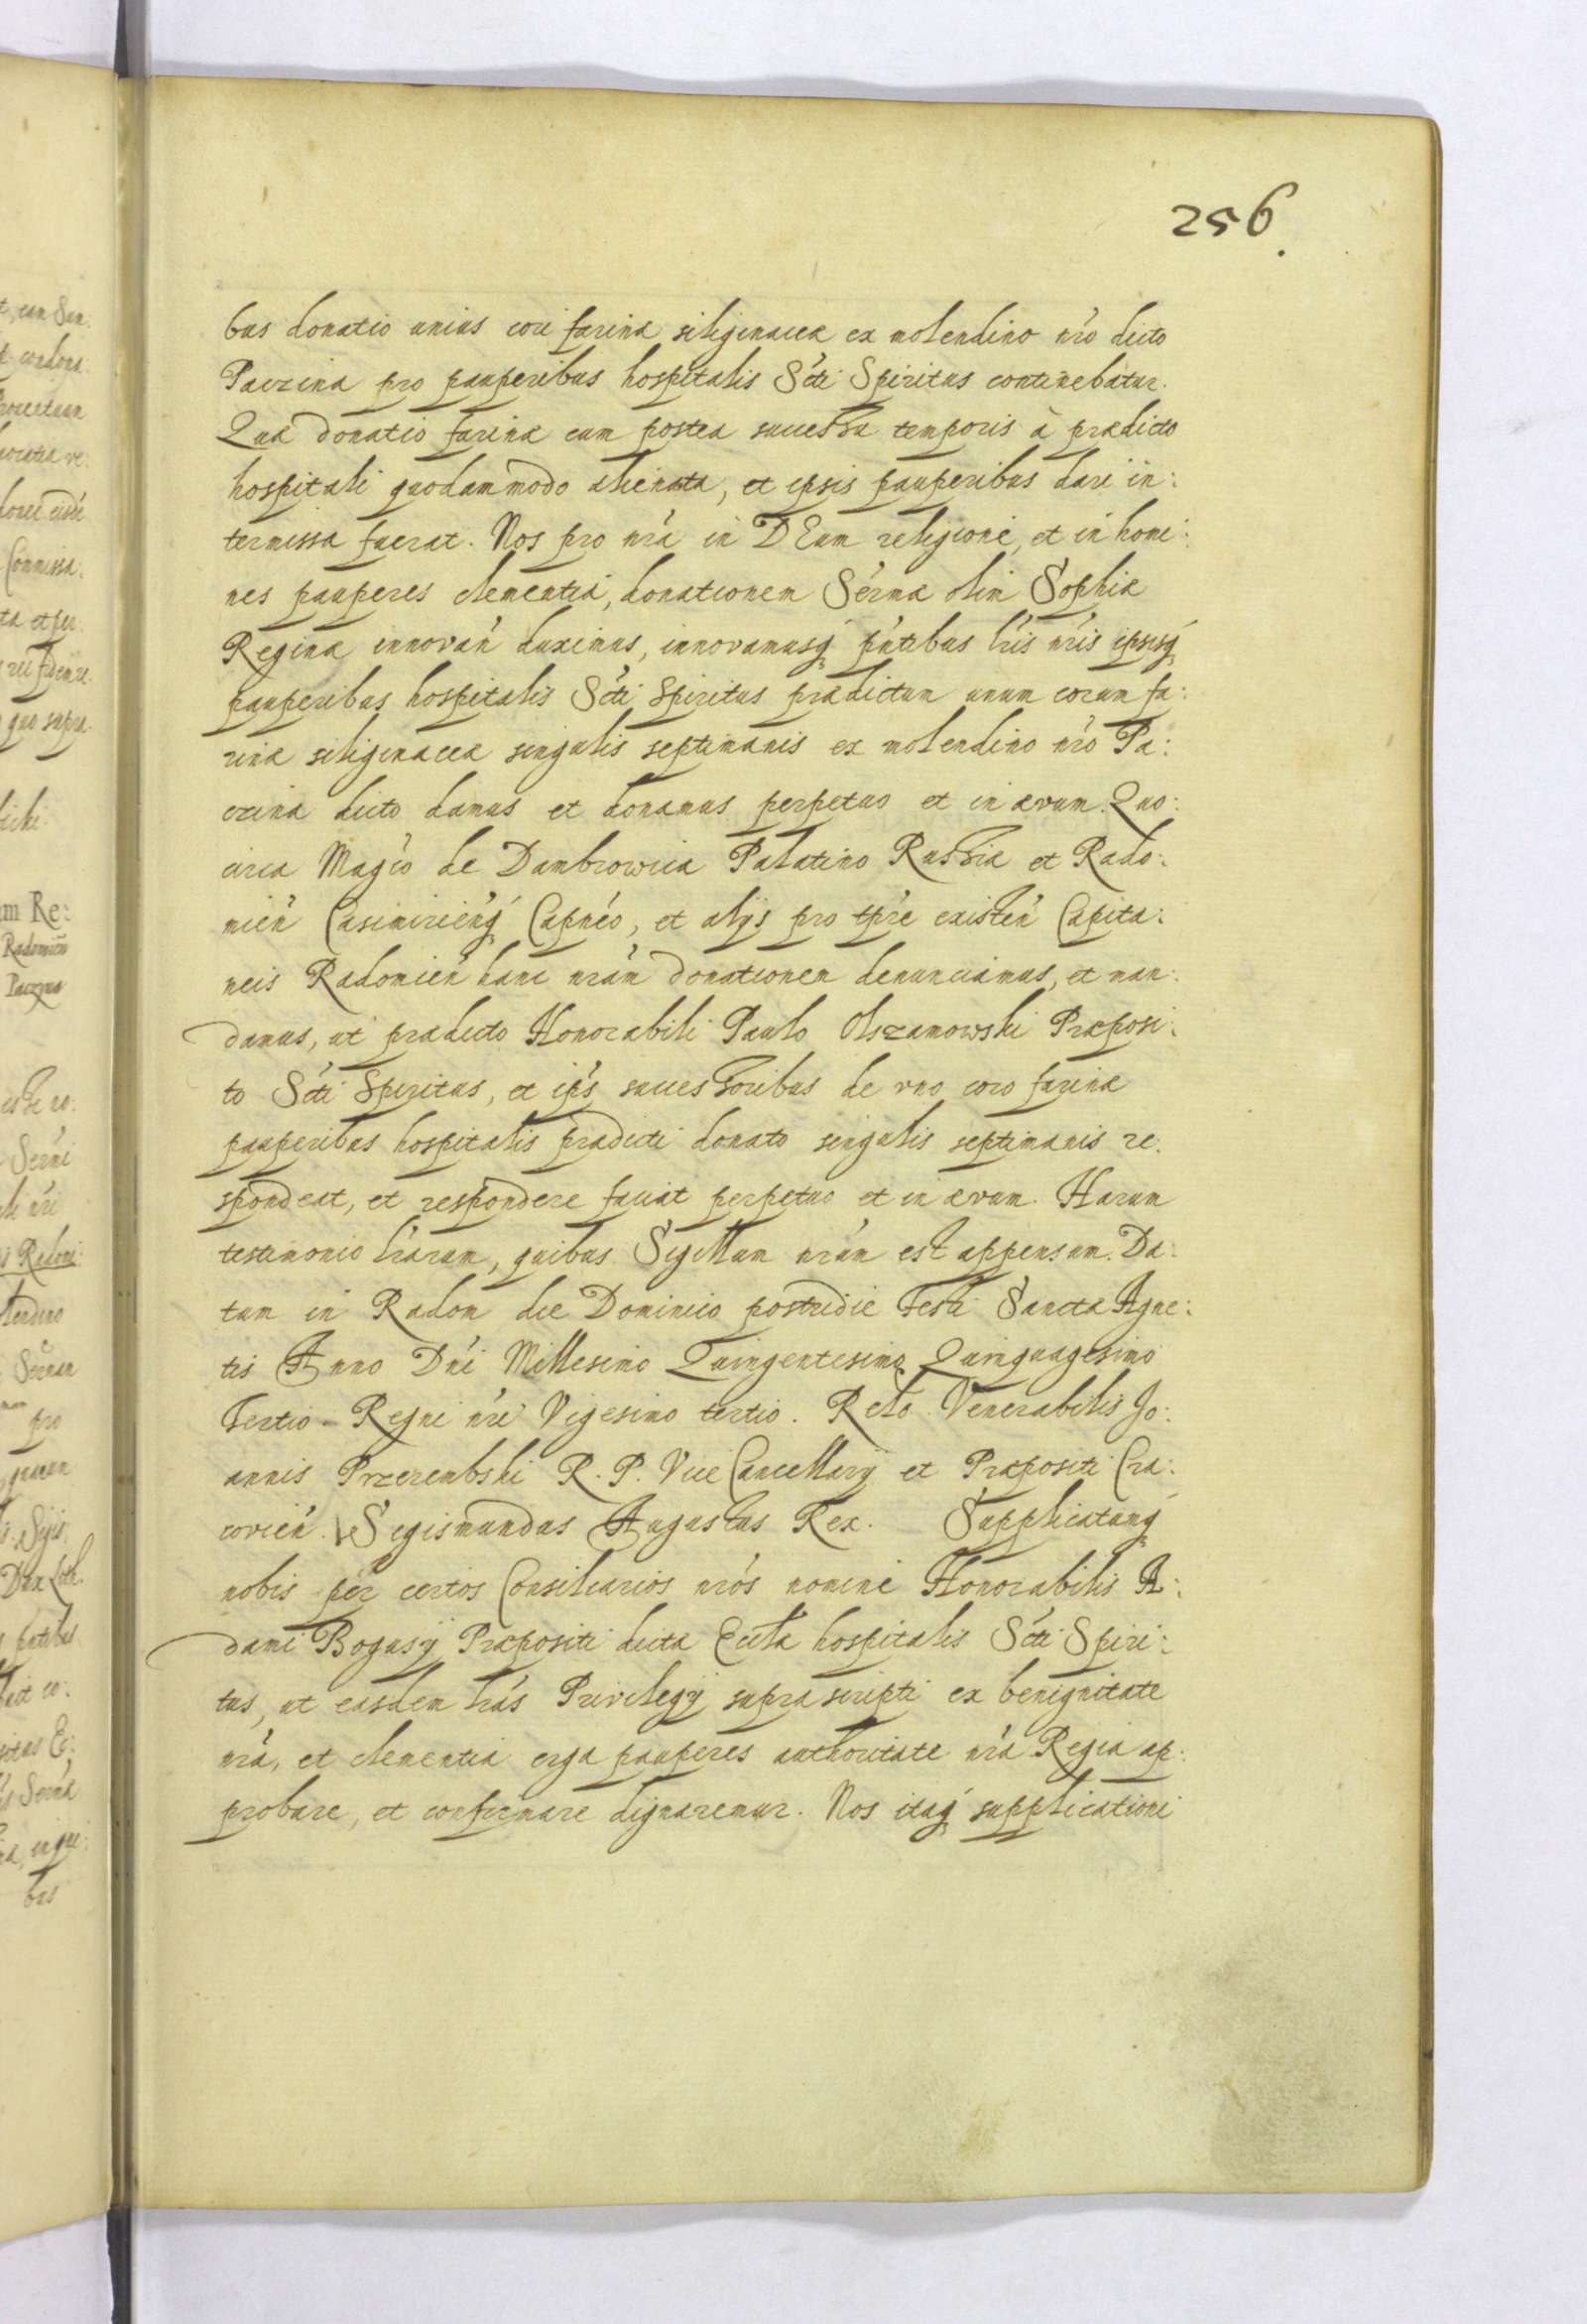 256.
bus donatio unius cori farinæ siligenaceæ ex molendino nr̃o dicto
Paczina pro pauperibus hospitalis Sc̃ti Spiritus continebatur.
Quæ donatio farinæ cum postea successu temporis à prædicto
hospitali quodammodo alienata, et ipsis pauperibus dari in:
termissa fuerat. Nos pro nr̃a in DEum religione, et in homi:
nes pauperes clementia, donationem Ser̃mæ olim Sophiæ
Reginæ innovañ duximus, innovamusq́ pñtibus lr̃is nr̃is ipsisq́
pauperibus hospitalis Sc̃ti Spiritus prædictum unum corum fa:
rinæ siligenaceæ singulis septimanis ex molendino nr̃o Pa:
czina dicto damus et donamus perpetuo et in ævum. Quo:
circa Magc̃o de Dambrowica Palatino Russiæ et Rado:
mień Casimirieńq́ Capnéo, et alijs pro tp̃re existeñ Capita:
neis Radomień hanc nr̃am donationem denunciamus, et man:
damus, ut prædicto Honorabili Paulo Olszamowski Præposi:
to Sc̃ti Spiritus, et ip̃s successoribus de vno coro farinæ
pauperibus hospitalis prædicti donato singulis septimanis re:
spondeat, et respondere faciat perpetuo et in ævum. Harum
testimonio lr̃arum, quibus Sigillum nr̃um est appensum. Da:
tum in Radom die Dominico postridie Festi Sanctæ Agne:
tis Anno Dñi Millesimo Quingentesimo Quinquagesimo
Tertio - Regni nr̃i Vigesimo tertio. Relo Venerabilis Jo:
annis Przerembski R. P. Vice Cancellarij et Præpositi Cra:
covień. Sigismundus Augustus Rex. Supplicatumq́
nobis per certos Consiliarios nr̃os nomine Honorabilis A:
dami Bogusij Præpositi dictæ Eccl̃æ hospitalis Sc̃ti Spiri:
tus, ut easdem lr̃as Privilegij supra scripti ex benignitate
nr̃a, et clementia erga pauperes authoritate nr̃a Regia ap:
probare, et confirmare dignaremur. Nos itaq́ supplicationi